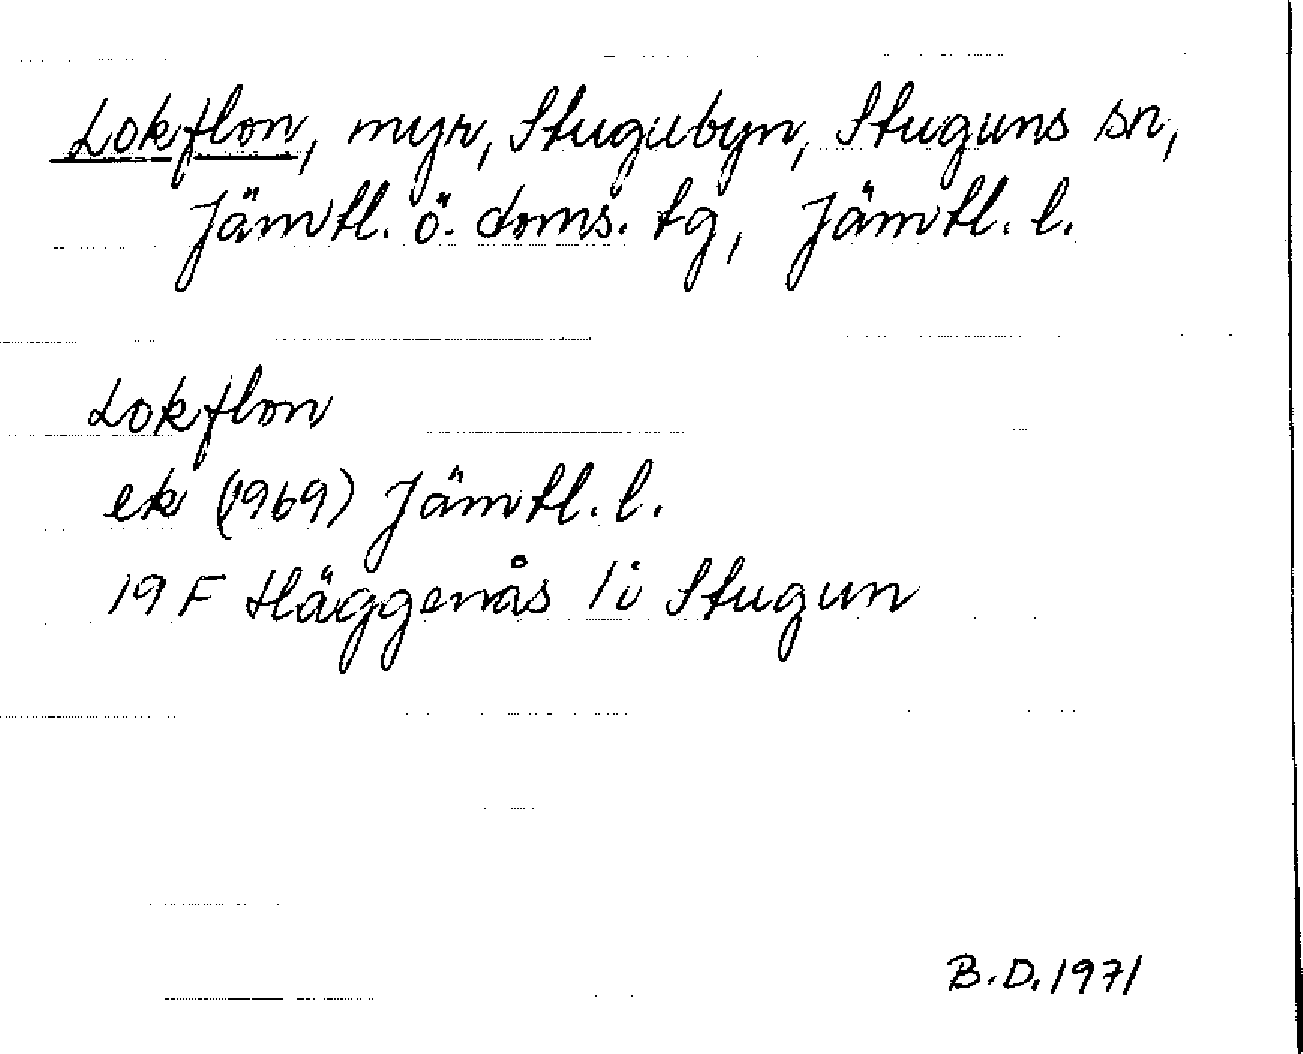 Lokflon, myr, Stugubyn, Stuguns sn,
Jämtl. ö. doms. tg, Jämtl. l.
Lokflon
ek (1969) Jämtl. l.
19 F Häggenås 1 i Stugun
B.D. 1971